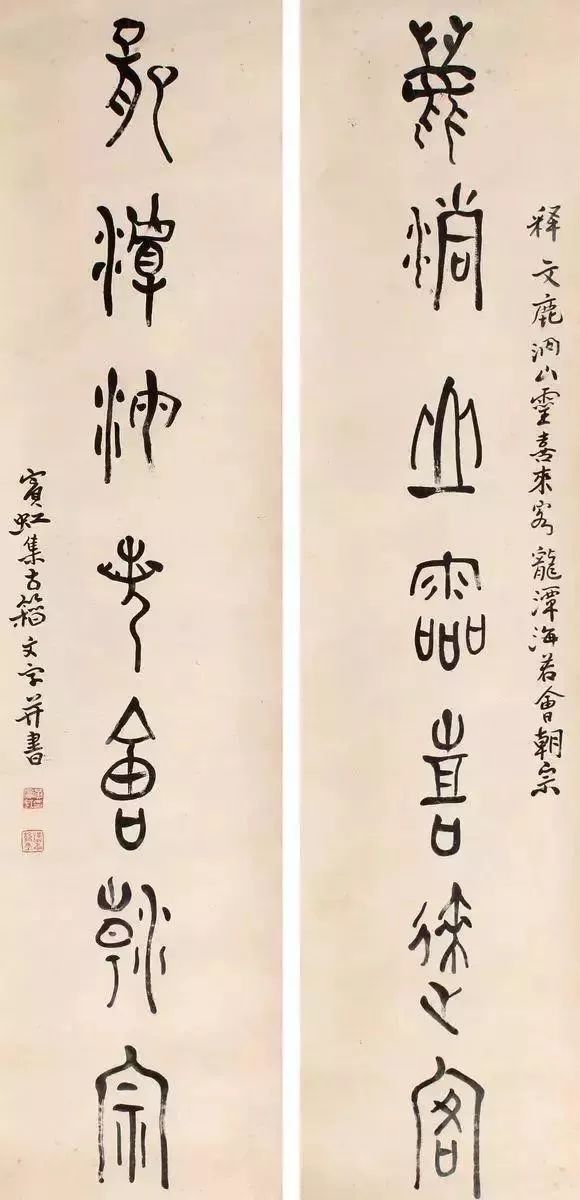 释文鹿洞山靈喜來客龍潭海若會朝宗
鹿洞山靈喜來客
龍潭海若會朝宗
賓虹集古籀文字并書